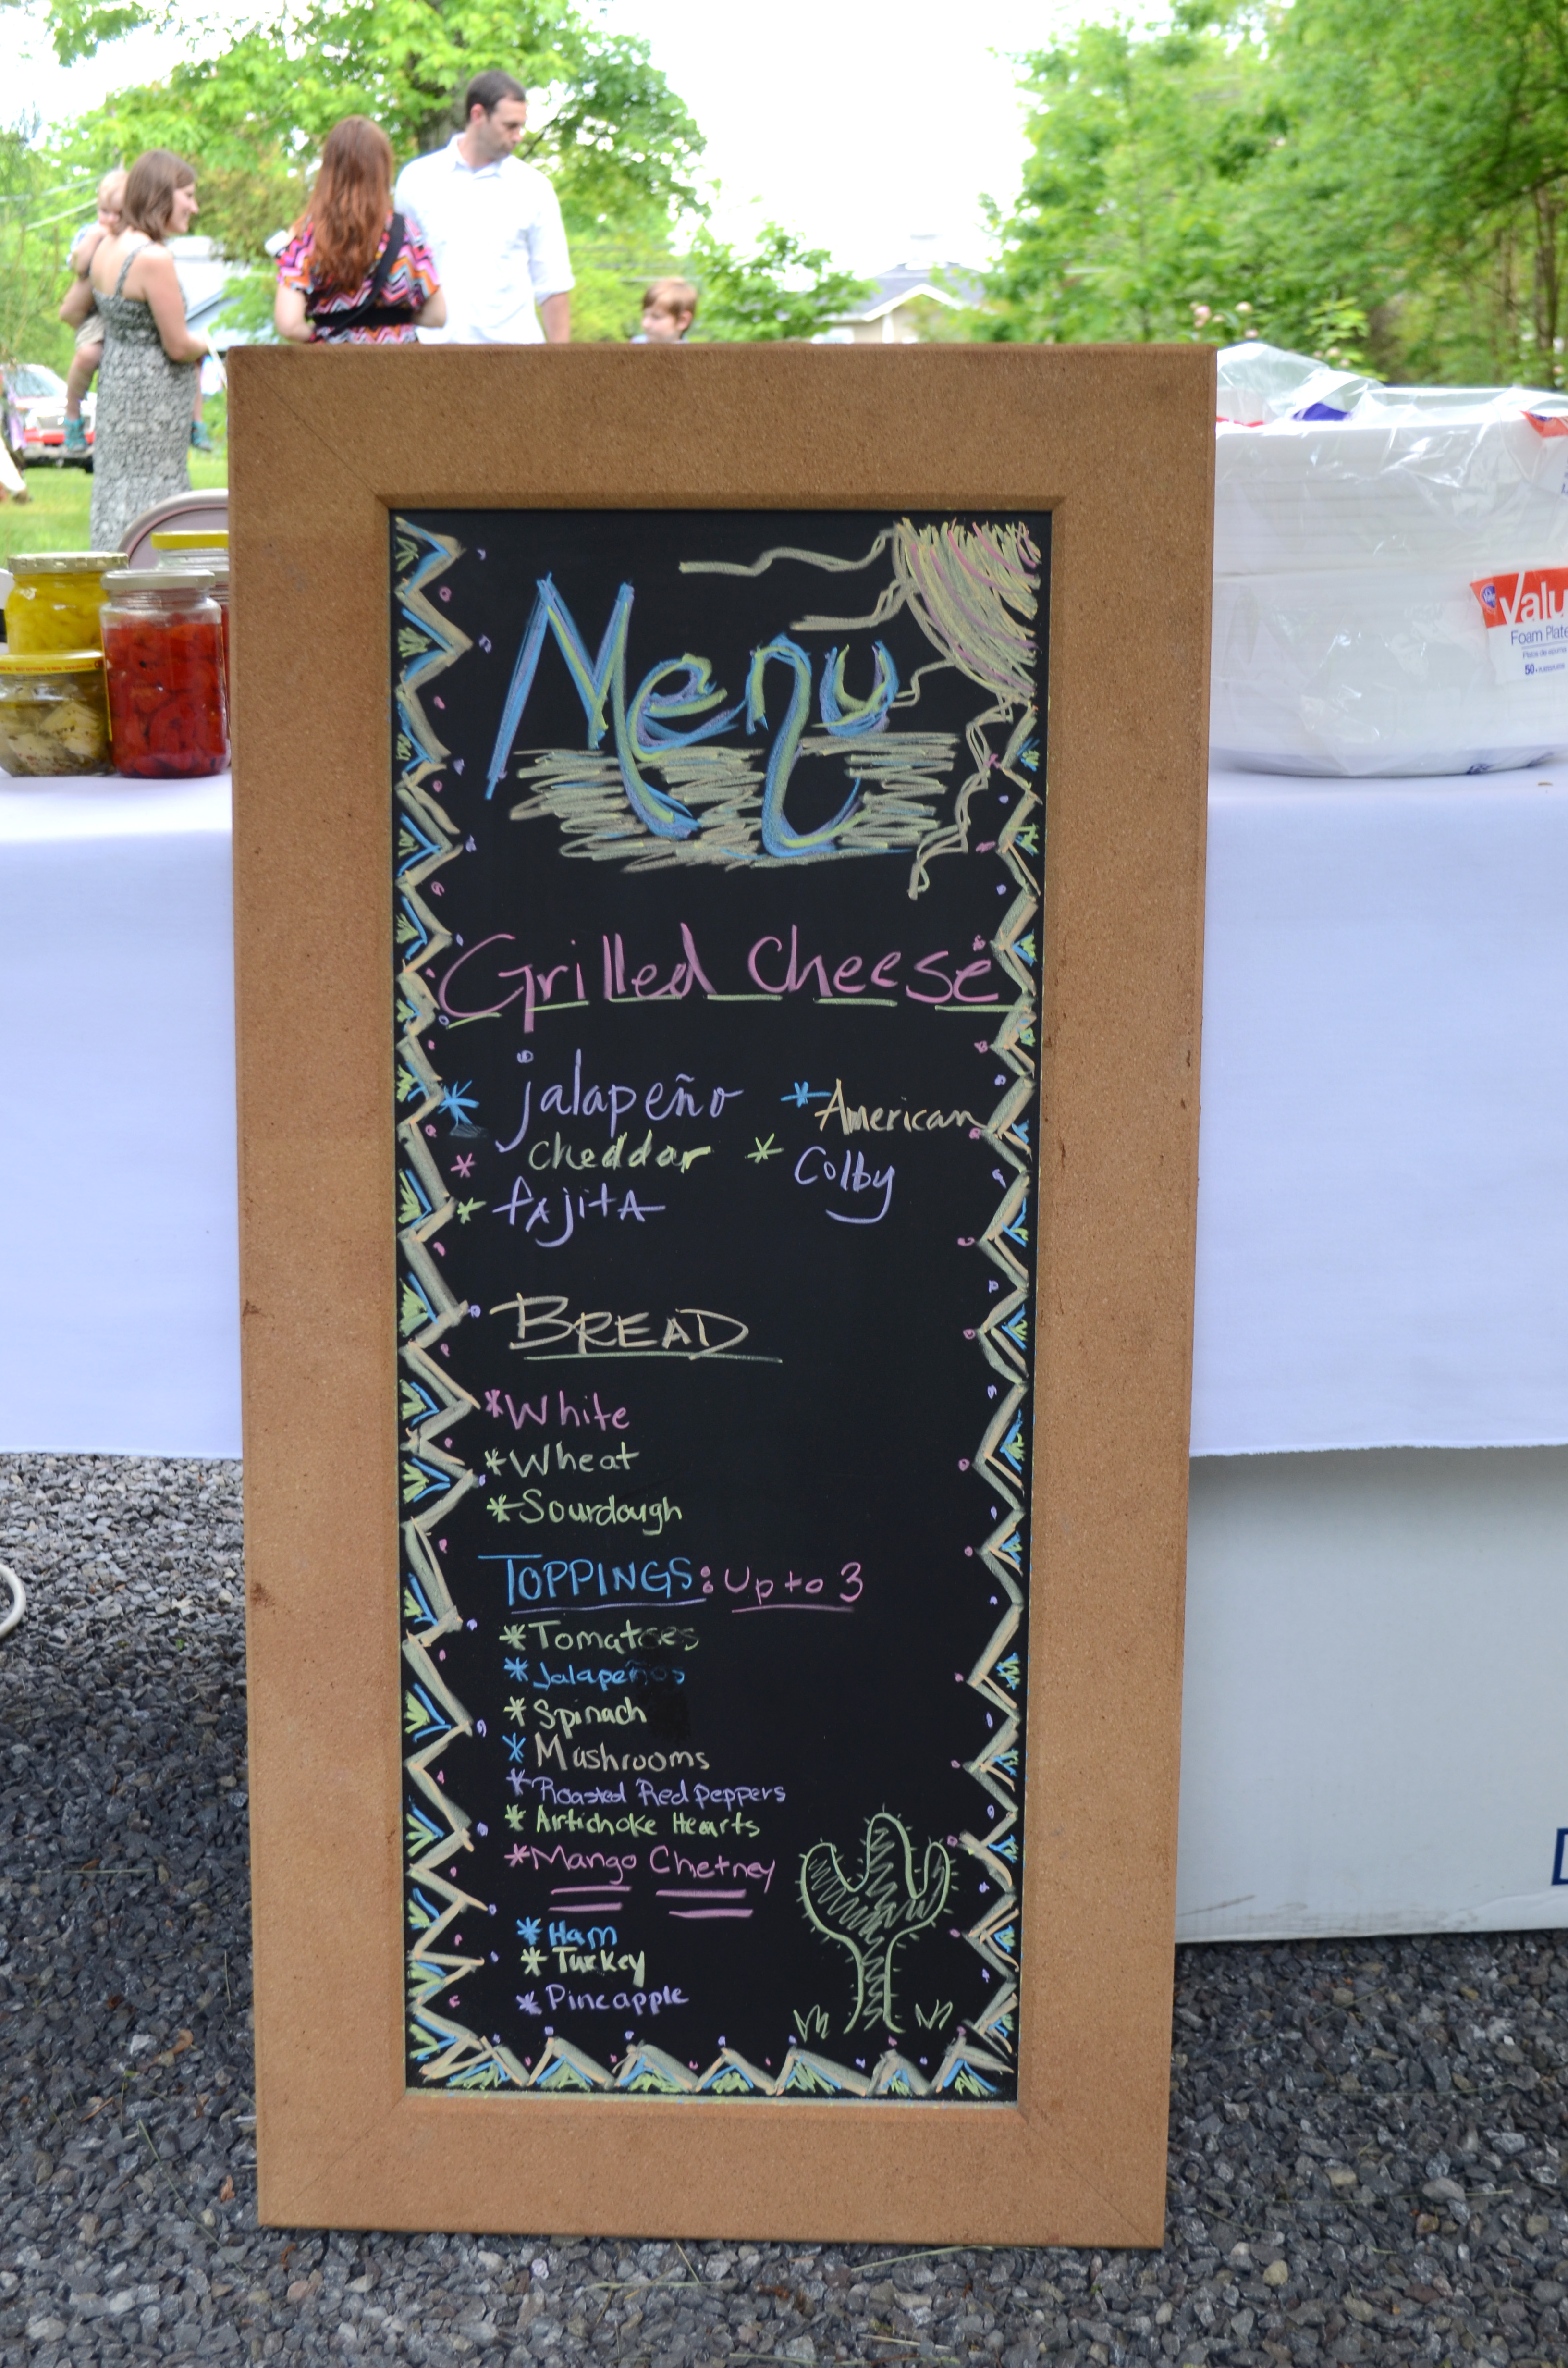 Menu
Grilled Cheese
* jalapeño
* cheddar
* fAjitA
* American
* Colby
BREAD
*White
*Wheat
*Sourdough
TOPPINGS: Up to 3
*Tomatoes
*Jalapeños
*Spinach
*Mushrooms
*Roasted Red peppers
*Artichoke Hearts
*Mango Chetney
*Ham
*Turkey
*Pineapple
Valu
Foam Plate
50